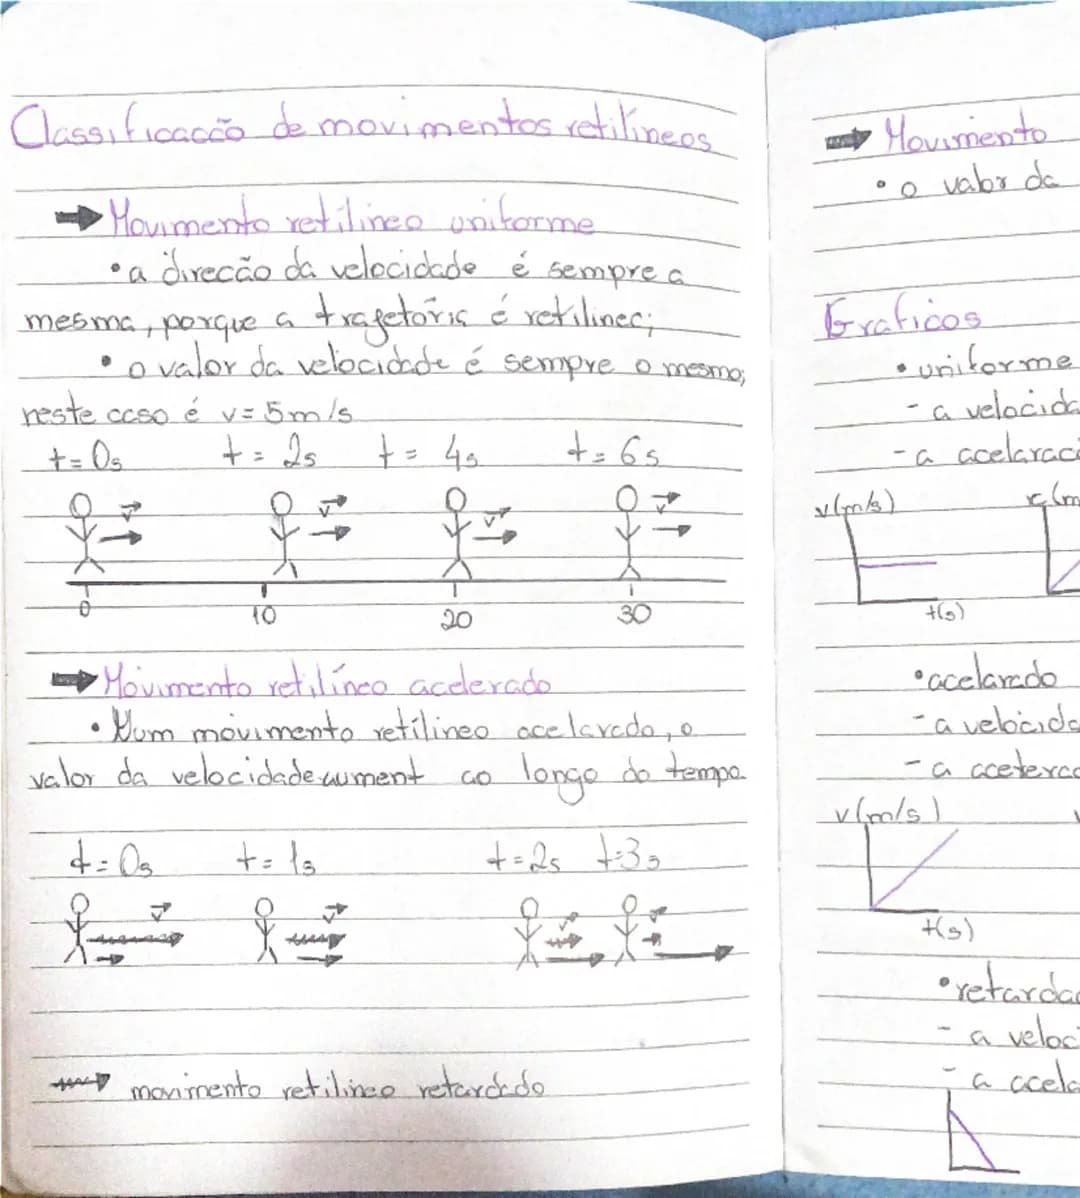 Classificação de movimentos retilíneos
Movimento retilineo uniforme
• a direcção da velocidade é sempre a
mesma, porque a trajetória é retilinea;
• o valor da velocidade é sempre o mesmo;
neste caso é v= 5m/s
t= 0s t= 2s t= 4s t= 6s
v v v v
0 10 20 30
Movimento retilíneo acelerado
• Num movimento retilineo acelarado, o
valor da velocidade aument ao longo do tempo
t= 0s t= 1s t=2s t=3s
v v v v
movimento retilineo retardado
Movimento
• o valor da
Graficos
• uniforme
- a velocida
- a acelaraci
v(m/s)
t(s)
• acelarado
- a velocida
- a
v(m/s)
t(s)
• retardad
- a veloc
- a acela